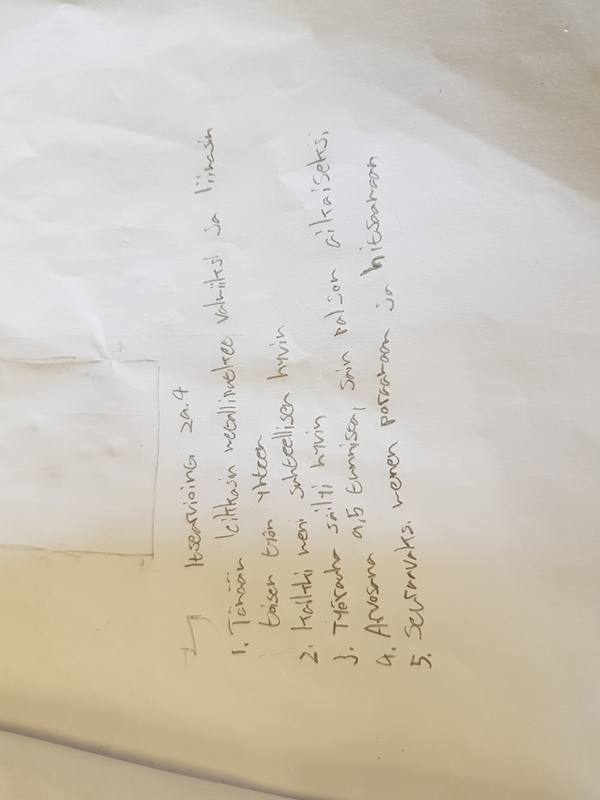 Itsearviointi 29.4
1. Tänään leikkasin metallinpalkee valmiiksi ja liimasin
toisen työn yhteen
2. kaikki meni suhteellisen hyvin
3. Työrauha säilyi hyvin
4. Arvosana 9,5 tunnissa, sain paljon aikaiseksi,
5. Seuraavaks. menen poraamaan ja hitsaamaan